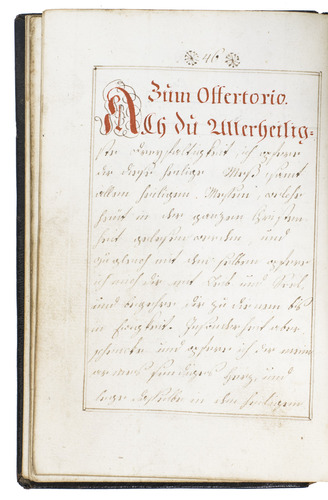 46
Zum Offertorio.
Ach du Allerheilig=
ste Dreyfaltigkeit ich opfere
dir diese heilige Meß samt
allen heiligen Messen, welche
heut in der ganzen Christen
heit gelesen werden, und
zugleich mit den selben opfere
ich auch dir mit Leib und Seel,
und begehre dir zu dienen bis
in Ewigkeit. Insonderheit aber
schencke und opfere ich dir mein
armes sündiges Herz, und
lege dasselbe in den heiligen